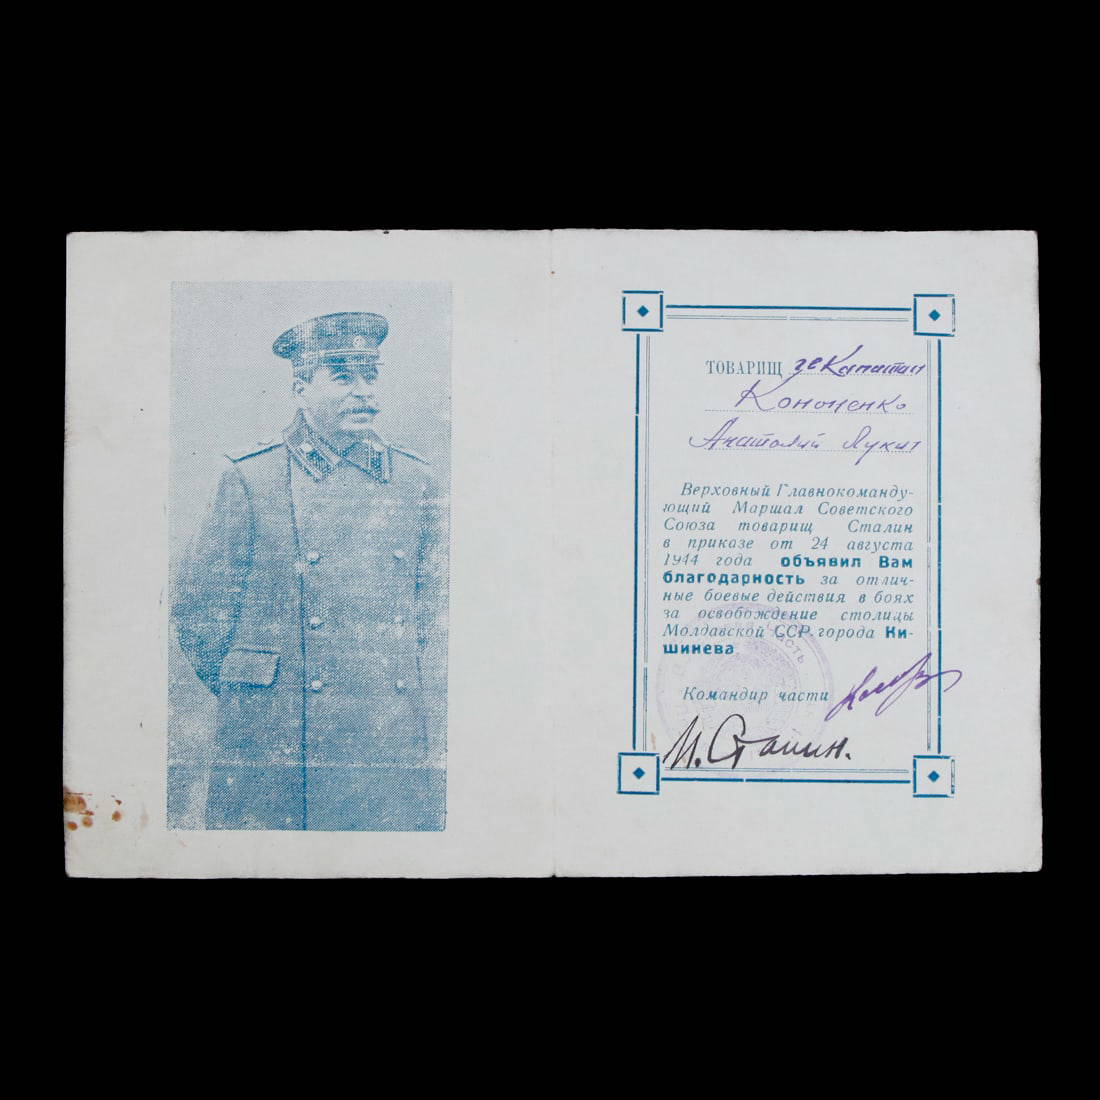 ТОВАРИЩ геКапитан
Кононенко
Анатолий Лукич
Верховный Главнокоманду-
ющий Маршал Советского
Союза товарищ Сталин
в приказе от 24 августа
1944 года объявил Вам
благодарность за отлич-
ные боевые действия в боях
за освобождение столицы
Молдавской ССР города Ки-
шинева
Командир части
И. Сталин.